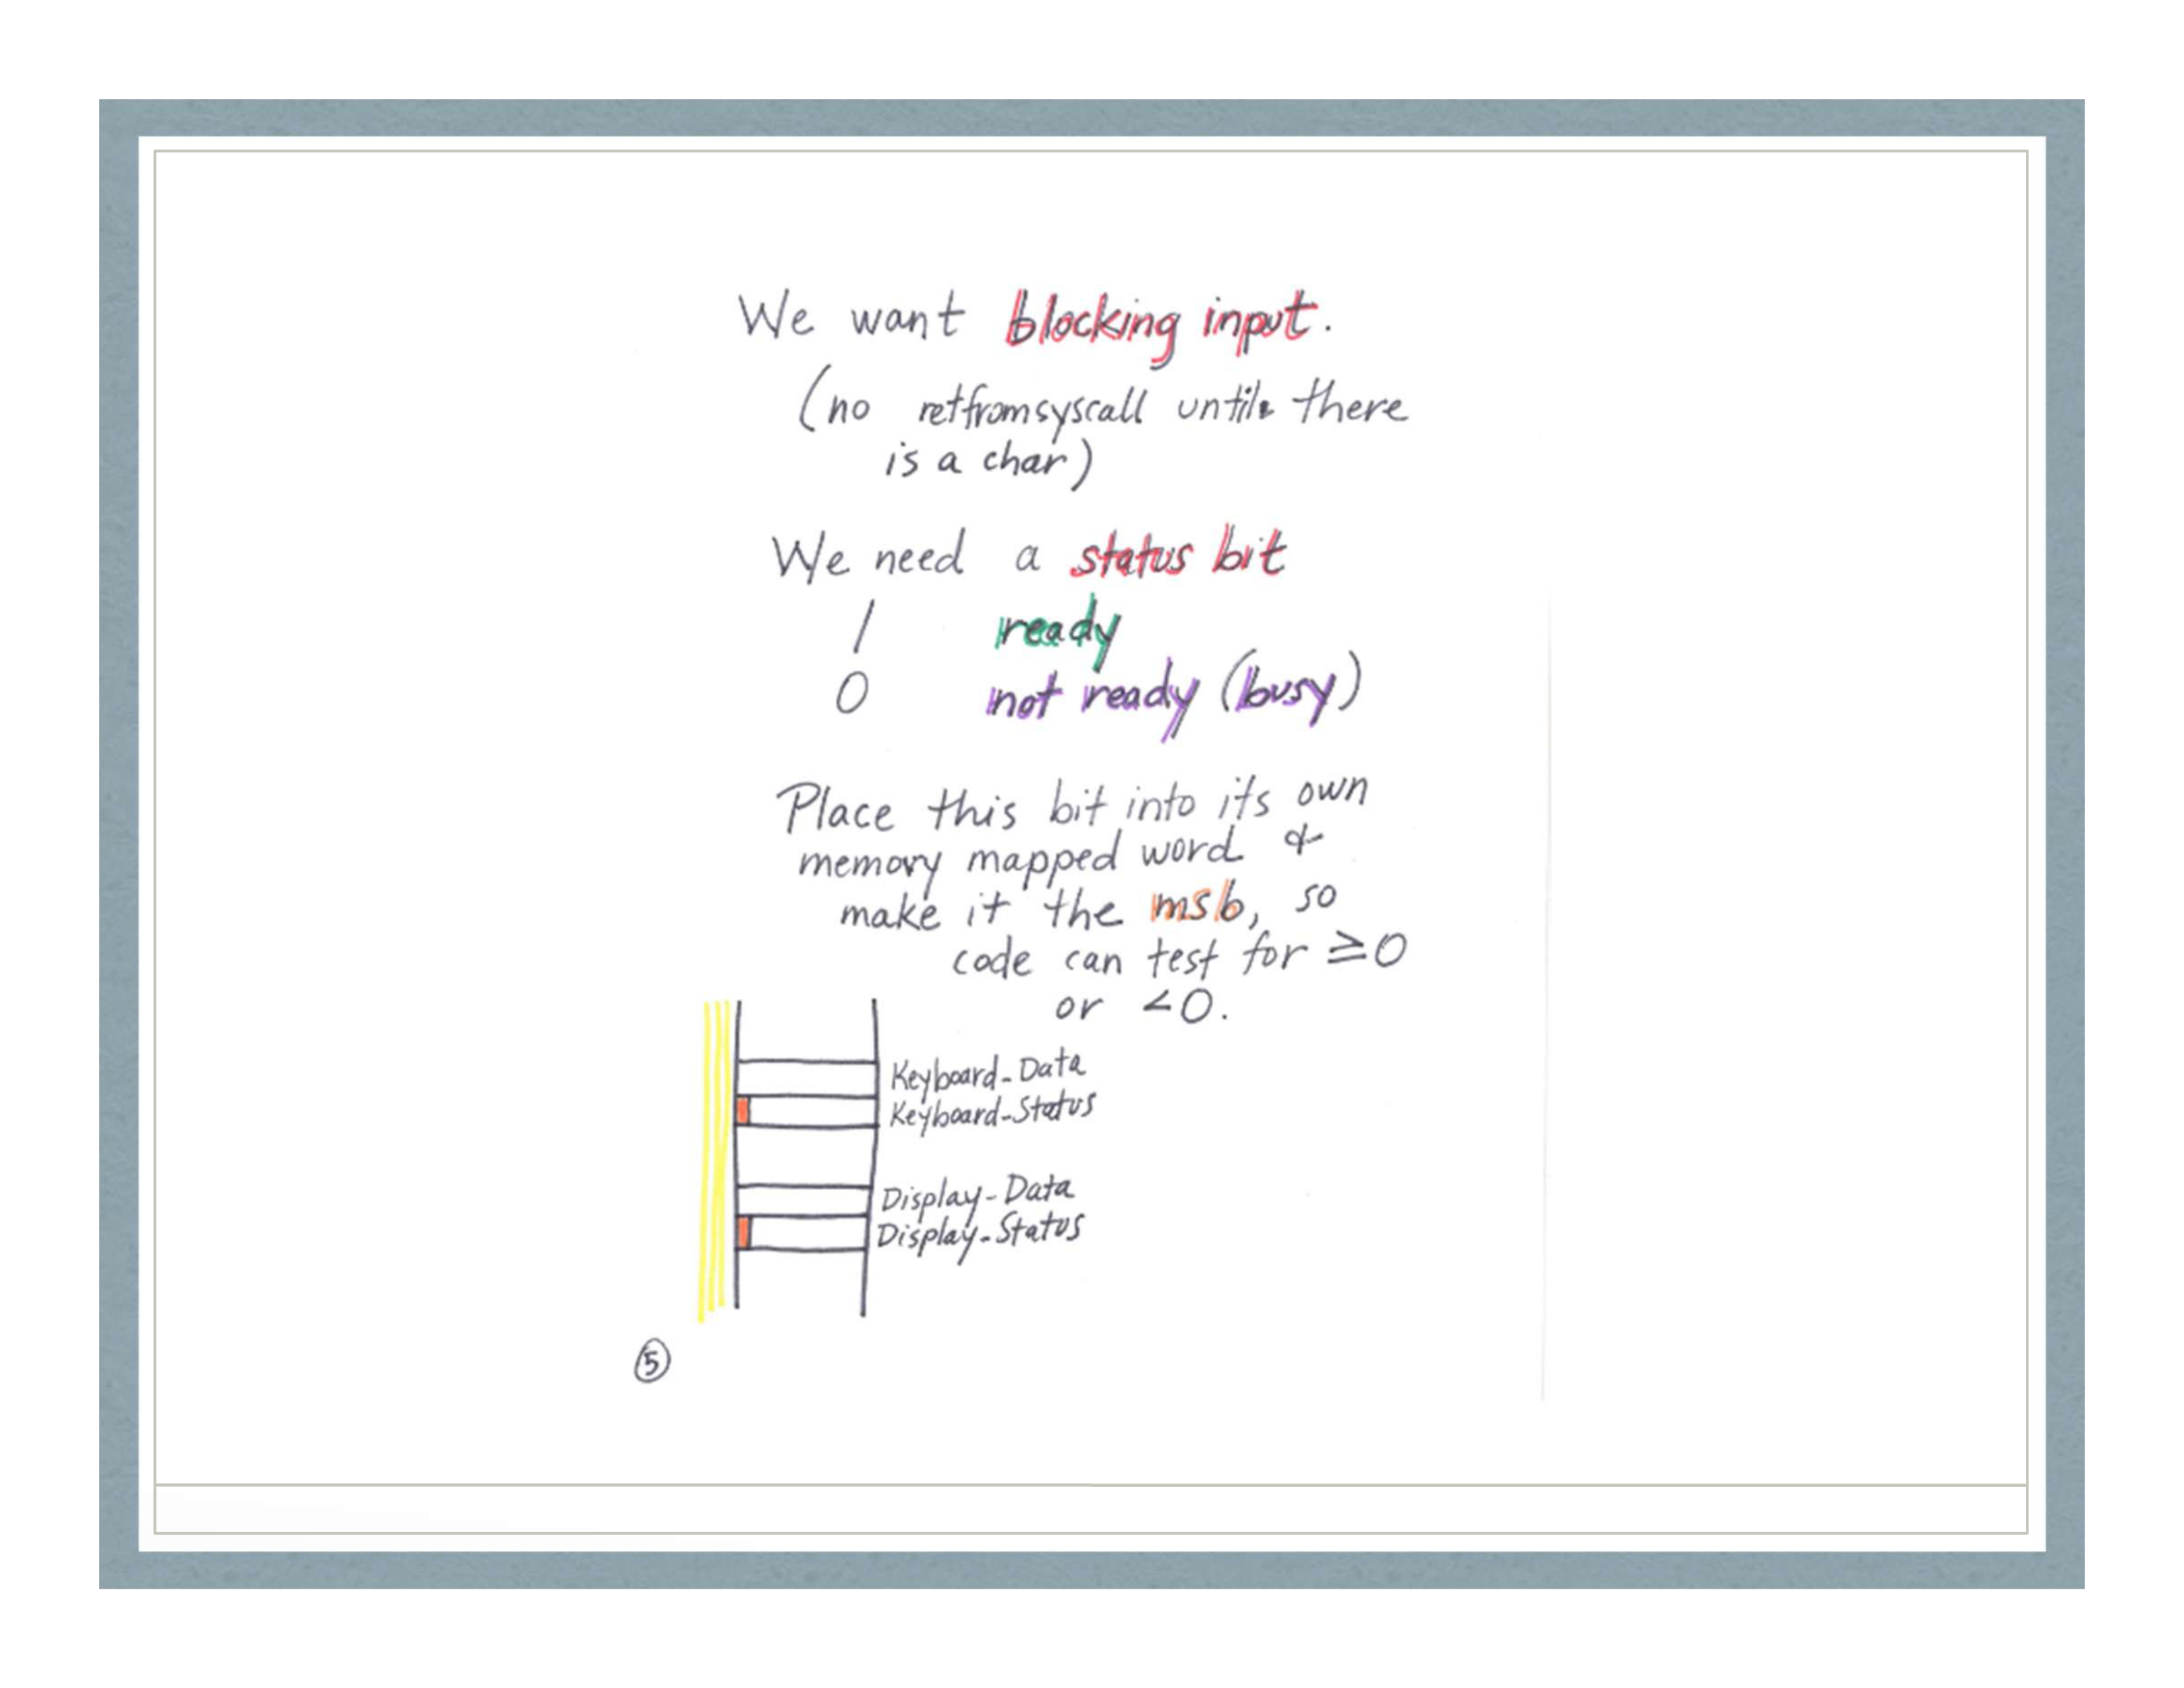 We want blocking input.
(no retfromsyscall until there
is a char)
We need a status bit
1 ready
0 not ready (busy)
Place this bit into its own
memory mapped word &
make it the msb, so
code can test for ≥0
or <0.
Keyboard_Data
Keyboard_Status
Display_Data
Display_Status
5